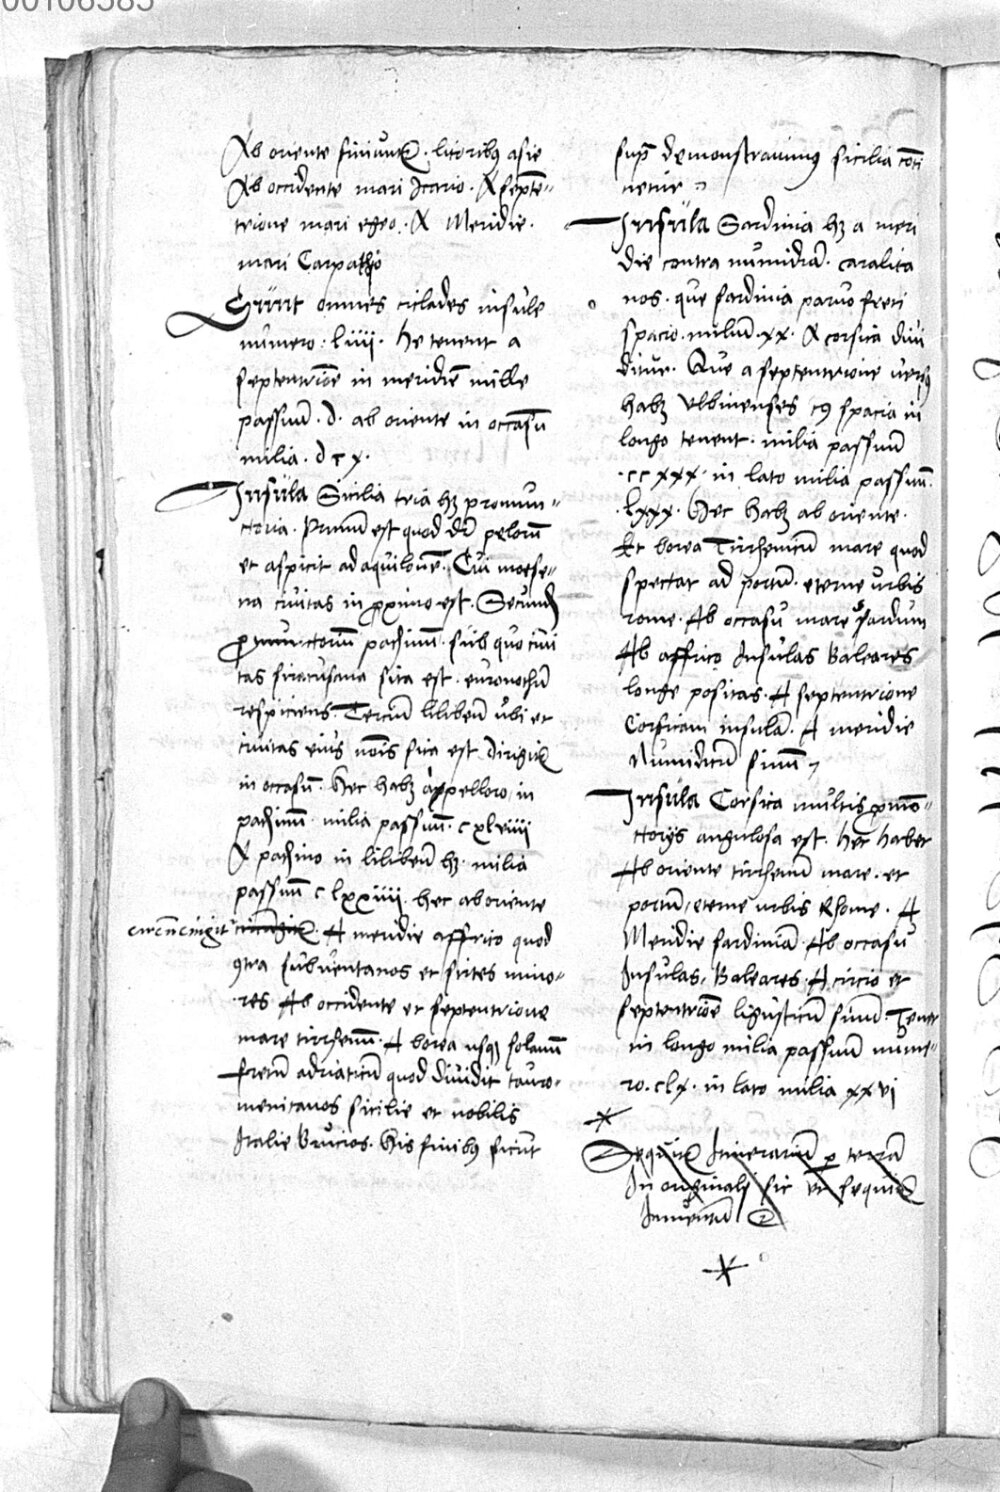 00106585
Ab oriente finiunt᷑. litorib⁹ asie
Ab occidente mari Icario. A septē-
trione mari egeo. A Meridie.
mari Carpathio
Sunt omnes ciclades insule
numero. liiii. he tenent a
septentriōe in meridiē mille
passuū. d. ab oriente in occasū
milia. d c x.
Insula Sicilia tria hȝ promun-
ctoria. Primū est quod dr̄ pelorū
et aspicit ad aquilonē. Cui messe-
na ciuitas in ꝓximo est. Secundū
ctoriū pachinū. sub quo ciui
tas siracusana sita est. euronothū
respiciens. Terciū lilibeū ubi et
ciuitas eius nōis sita est dirigit᷑
in occasū. Hec habȝ a pelloro in
pachinū milia passuū. c xlviiii
A pachino in lilibeū hȝ. milia
passuū c lxxiiii. hec ab oriente
circūcingit᷑. A meridie affrico quod
ꝯtra subuentanos et sirtes mino-
res Ab occidente et septentrione
mare tirrhenū. A borea usqȝ solanū
fretū adriaticū quod diuidit tauro-
menitanos sicilie et nobilis
Italie Brucios. His finibus sicut
supᵃ demonstrauimus sicilia cōti
netur
Insula Sardinia hȝ a meri
die contra numidiā. caralita
nos. que sardinia paruo freti
spacio. miliū. xx. A corsica diui
ditur. Que a septentrione uersus
habȝ Ulbienses cꝯ spacia in
longo tenent. milia passuū
.cc xxx. in lato milia passuum.
.lxxx. Hec habȝ ab oriente.
Et borea Tirrhenicū mare quod
spectat ad portū. eterne urbis
rome. Ab occasu mare sardum
Ab affrico Insulas Baleares
longe positas. A septentrione
Corsicam insulā. A meridie
Numidicū sinū
Insula Corsica multis ꝓmō-
ctorijs angulosa est. hec habet
Ab oriente tirrhenū mare. et
portū, eterne urbis Rhome. A
Meridie sardiniā. Ab occasu
Insulas, Baleares. A circio et
septentriōe ligusticū sinū. Tenet
in longo milia passuū nume-
ro. clx. in lato milia xxvi
*
Sequit᷑ Itinerariū ꝑ terrā
In originali sic ut sequit᷑
Inuentū
*